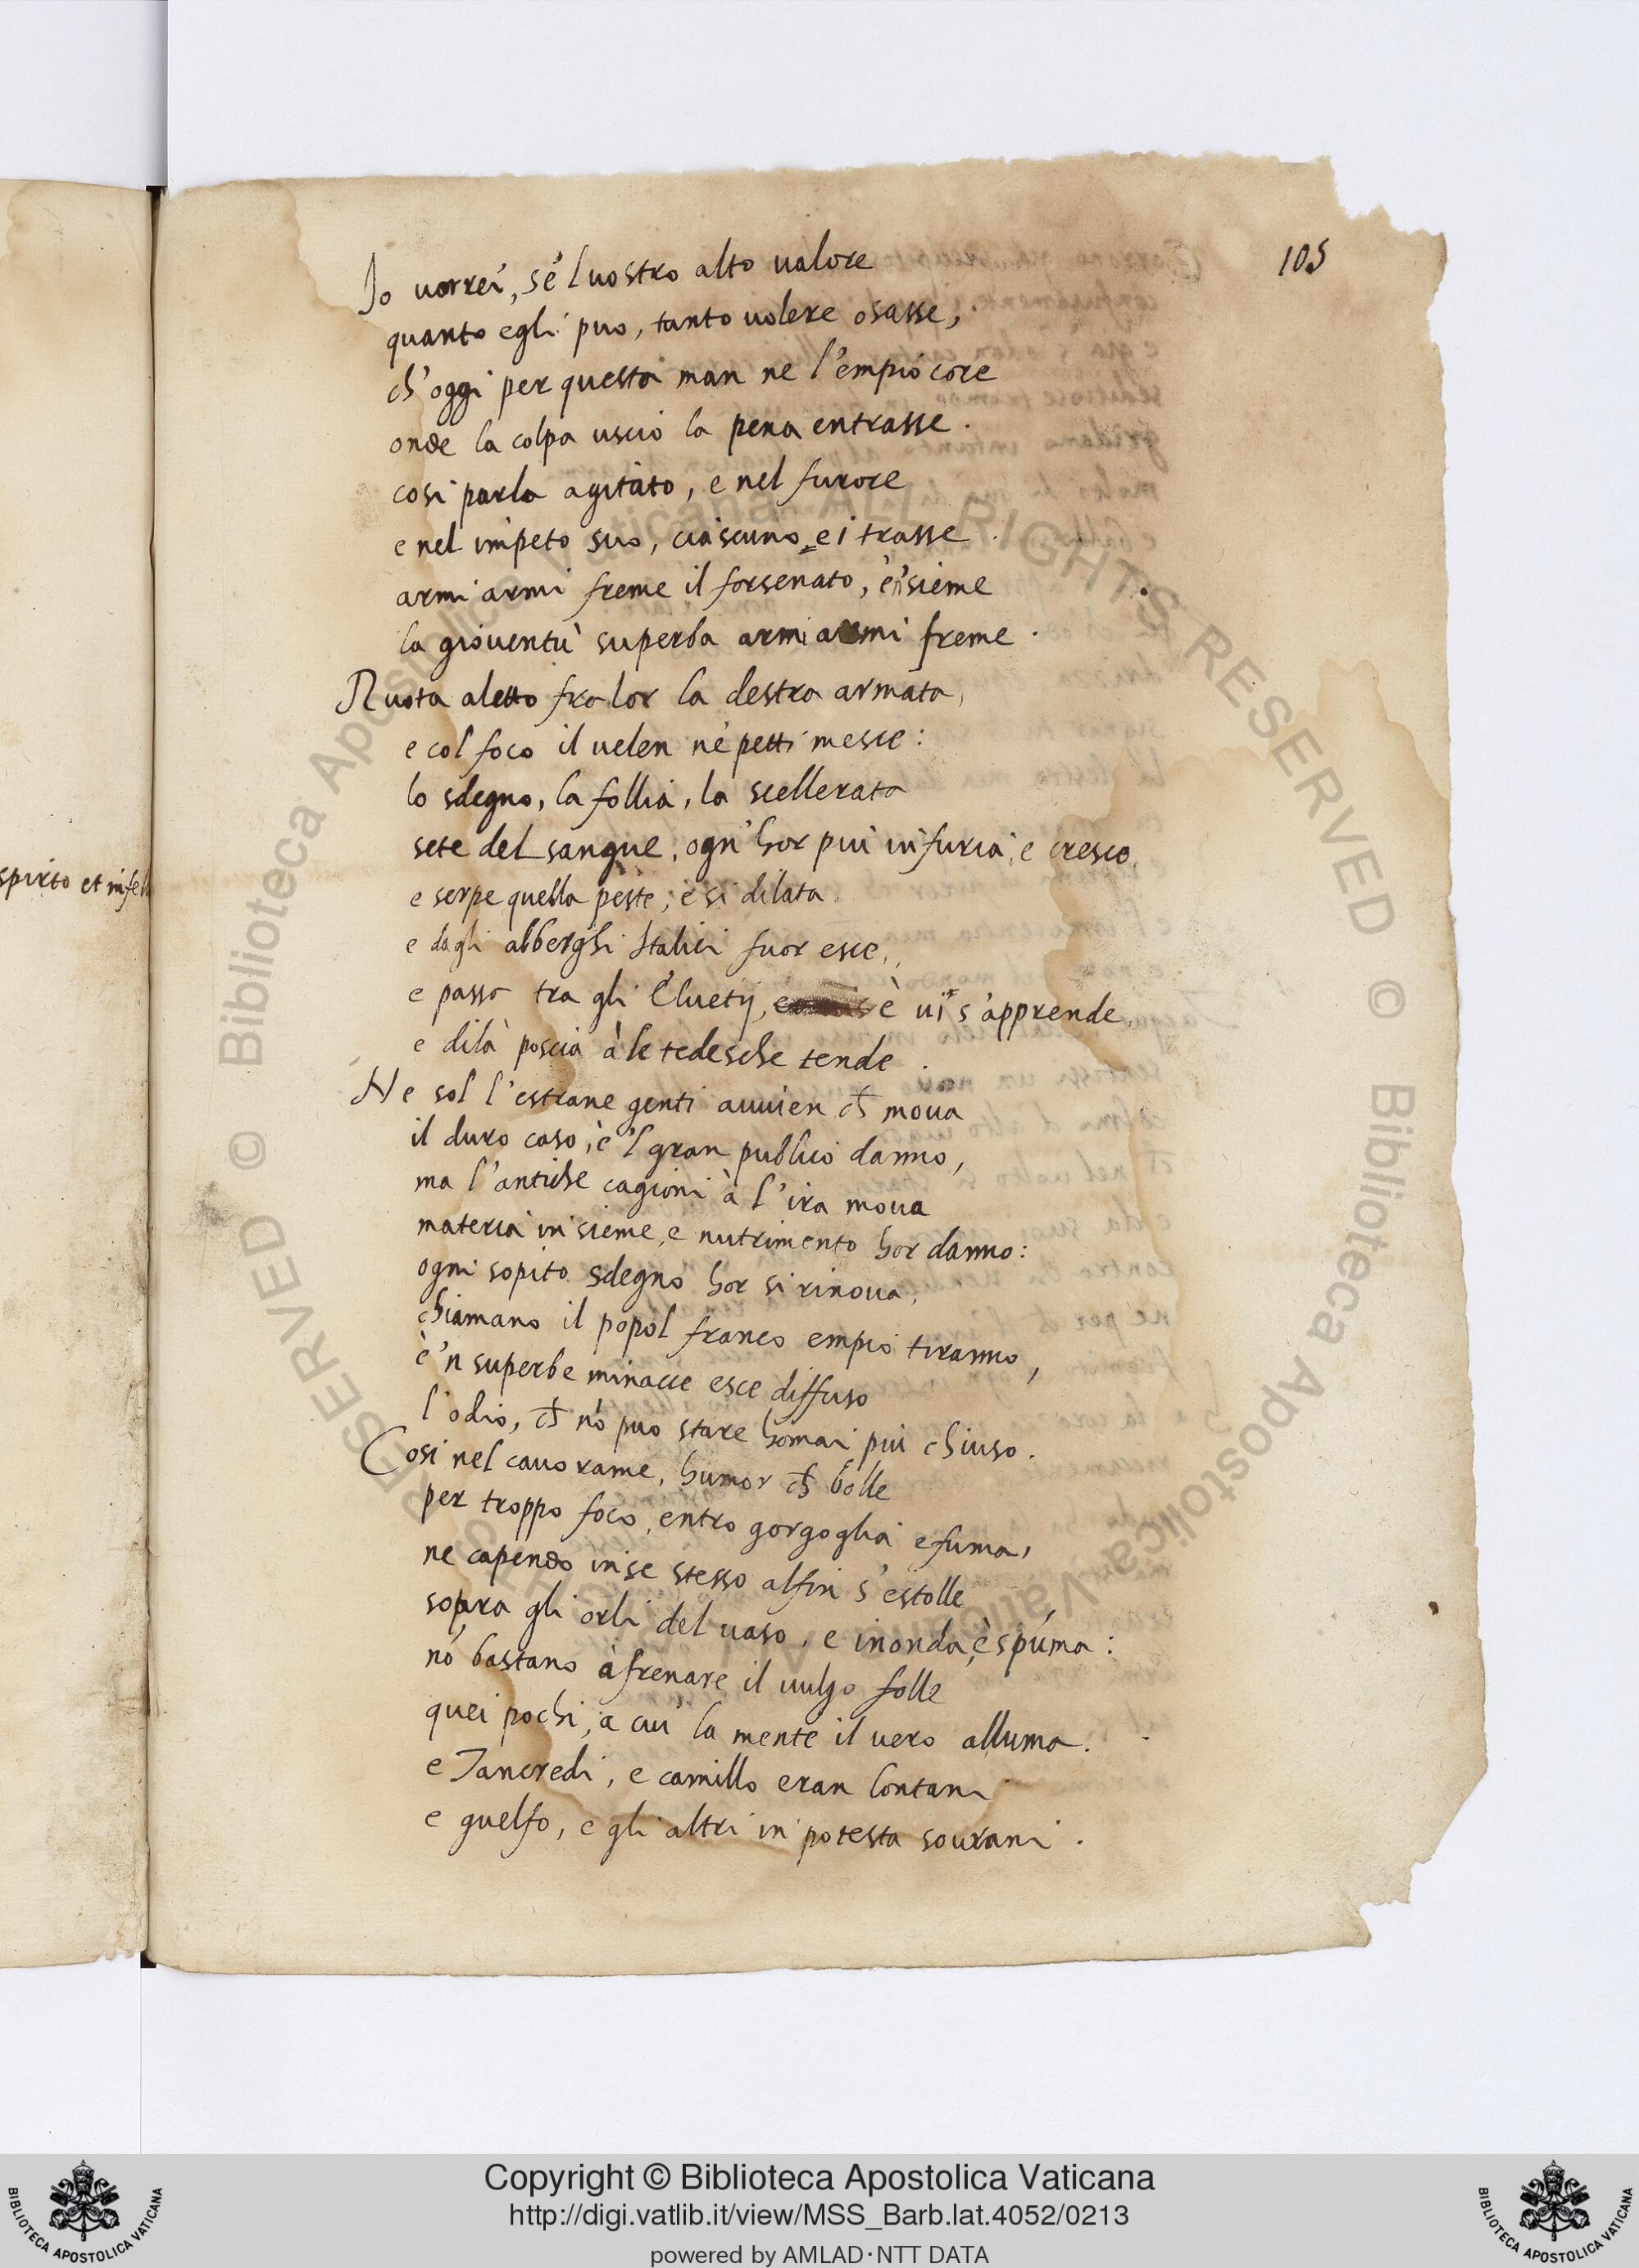 105
Io uorrei, se'l uostro alto ualore
quanto egli puo, tanto uolere osasse,
ch'oggi per questa man ne l'empio core
onde la colpa uscio la pena entrasse.
cosi parla agitato, e nel furore
e nel impeto suo, ciascuno ei trasse.
armi armi freme il forsenato, e'nsieme
la giouentù superba armi armi freme.
Ruota aletto fra lor la destra armata,
e col foco il uelen ne petti mesce:
lo sdegno, la follia, la scellerata
sete del sangue, ogn'hor piu infuria, e cresce,
e serpe quella peste, e si dilata
e dagli alberghi Italici fuor esce,
e passa tra gli Eluetij, è ui s'apprende,
e di là poscia à le tedesche tende.
Ne sol l'estrane genti auuien ch moua
il duro caso, e'l gran publico danno,
ma l'antiche cagioni à l'ira moua
materia insieme, e nutrimento hor danno:
ogni sopito sdegno hor si rinoua,
chiamano il popol franco empio tiranno,
è'n superbe minacce esce diffuso
l'odio, ch nō puo stare homai piu chiuso.
Cosi nel cauo rame, humor ch bolle
per troppo foco, entro gorgoglia e fuma,
ne capendo in se stesso alfin s'estolle
sopra gli orli del uaso, e inonda, è spuma:
nō bastano à frenare il uulgo folle
quei pochi, a cui la mente il uero alluma.
e Tancredi, e camillo eran lontani
e guelfo, e gli altri in potesta sourani.
spirto et infel
© Biblioteca Apostolica Vaticana ALL RIGHTS RESERVED
© Biblioteca Apostolica Vaticana ALL RIGHTS RESERVED
BIBLIOTECA APOSTOLICA VATICANA
Copyright © Biblioteca Apostolica Vaticana
http://digi.vatlib.it/view/MSS_Barb.lat.4052/0213
powered by AMLAD·NTT DATA
BIBLIOTECA APOSTOLICA VATICANA